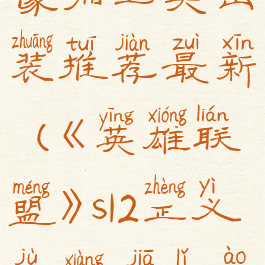 zhuāng tuī jiàn zuì xīn
装推荐最新
yīng xióng lián
(《英雄联
méng zhèng yì
盟》s12正义
jù xiàng jiā lǐ ào